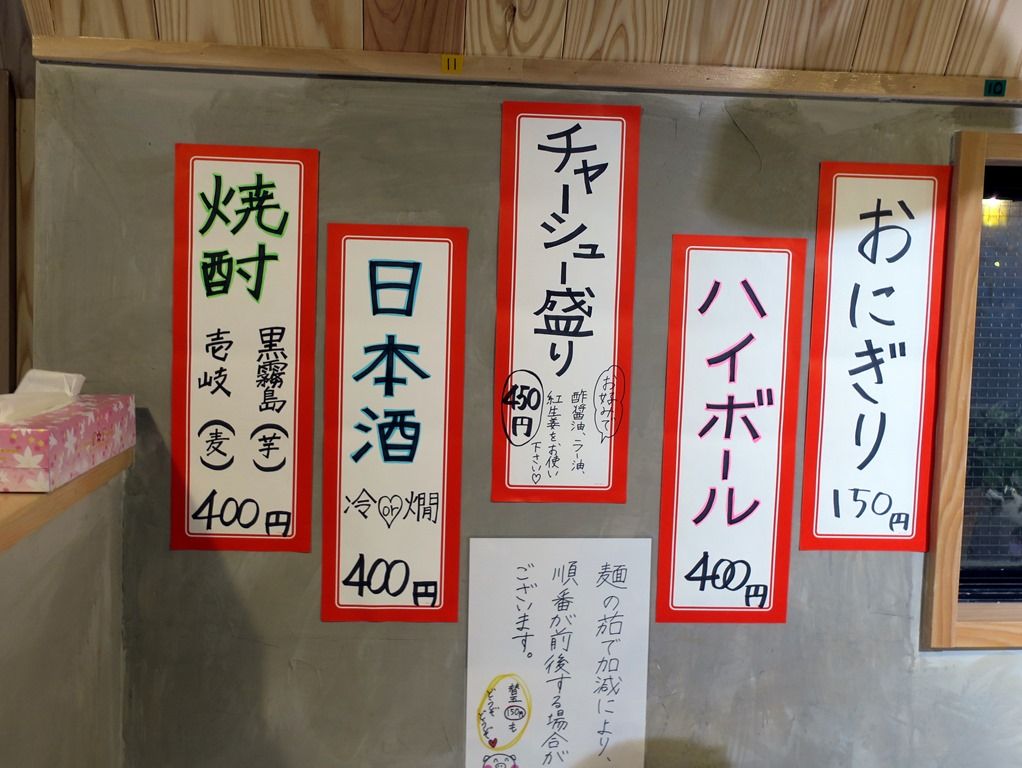 11
10
焼酎
黒霧島(芋)
壱岐(麦)
400円
日本酒
冷or燗
400円
チャーシュー盛り
お好みで
酢醤油、ラー油、
紅生姜をお使い
下さい♡
450円
ハイボール
400円
おにぎり
150円
麺の茹で加減により、
順番が前後する場合が
ございます。
替玉
150円も
どうぞ
どうぞ♥